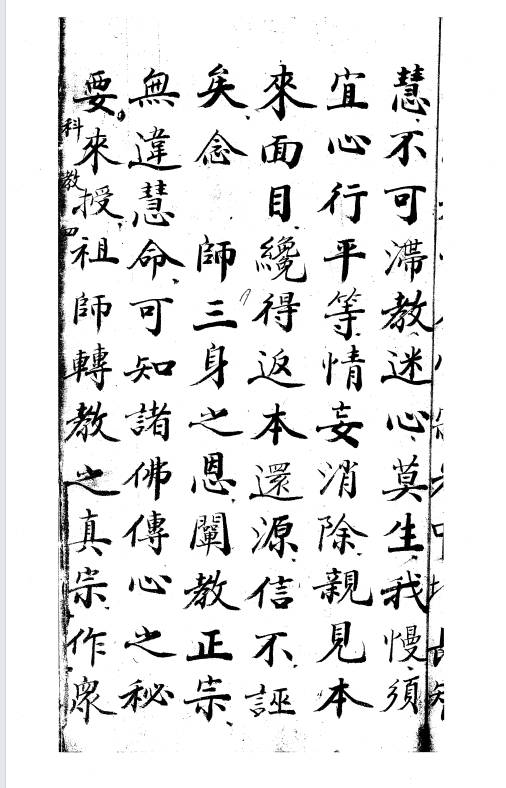 慧不可滯教迷心莫生我慢須
宜心行平等情妄消除親見本
來面目纔得返本還源信不誣
矣念 師三身之恩闡教正宗
無違慧命可知諸佛傳心之秘
要來授祖師轉教之真宗作眾
科教四